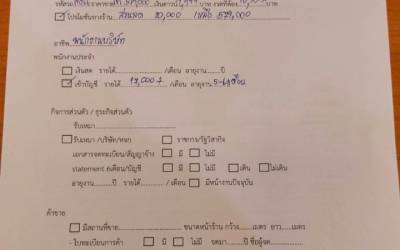 รหัสรถ ราคาขาย 599,000 เงินดาวน์ 1,999 บาท งวดที่ต้อง บาท
☑ โปรโมชั่นทางร้าน ส่วนลด 20,000 เหลือ 579,000
อาชีพ พนักงานบริษัท
พนักงานประจำ
☐ เงินสด รายได้............../เดือน อายุงาน.......ปี
☑ เข้าบัญชี รายได้ 17,000 /เดือน อายุงาน 5-6 เดือน
กิจการส่วนตัว / ธุรกิจส่วนตัว
รับเหมา
☐ รับเหมา /บริษัท/หจก ☐ ราชการ/รัฐวิสากิจ
เอกสารจดทะเบียน/สัญญาจ้าง ☐ มี ☐ ไม่มี
statement 6เดือน/บัญชี ☐ มี ☐ ไม่มี ☐ เดิน ☐ ไม่เดิน
อายุงาน.......ปี รายได้............/ เดือน ☐ มีหน้างานปัจจุบัน
ค้าขาย
☐ มีสถานที่ขาย............ ขนาดหน้าร้าน กว้าง......เมตร ยาว.......เมตร
- ใบทะเบียนการค้า ☐ มี ☐ ไม่มี จดมา.......ปี ชื่อผู้จด